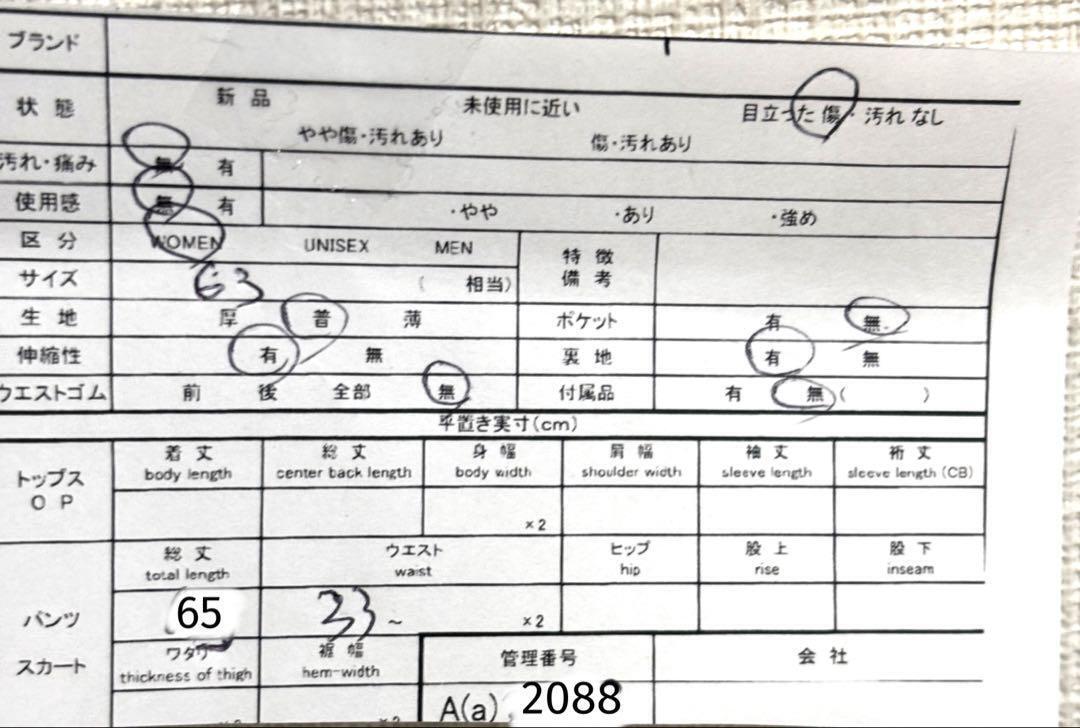 ブランド
状態 新品 未使用に近い 目立った傷・汚れなし
やや傷・汚れあり 傷・汚れあり
汚れ・痛み 無 有
使用感 無 有 ・やや ・あり ・強め
区分 WOMEN UNISEX MEN 特徴
備考
サイズ 63 ( 相当)
生地 厚 普 薄 ポケット 有 無
伸縮性 有 無 裏地 有 無
ウエストゴム 前 後 全部 無 付属品 有 無 ( )
平置き実寸(cm)
トップス 着丈 総丈 身幅 肩幅 袖丈 裄丈
body length center back length body width shoulder width sleeve length sleeve length (CB)
O P
×2
総丈 ウエスト ヒップ 股上 股下
total length waist hip rise inseam
パンツ 65 33 ~ ×2
スカート ワタリ 裾幅 管理番号 会社
thickness of thigh hem-width
×2 ×2 A(a) 2088